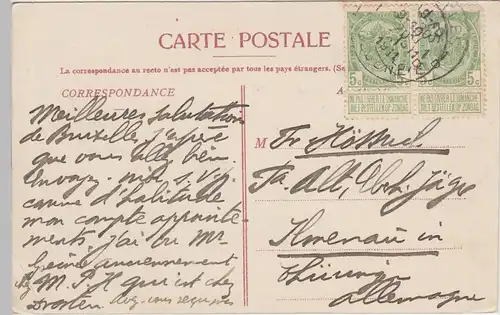 CARTE POSTALE
La correspondance au recto n'est pas acceptée par tous les pays étrangers. (Se
CORRESPONDANCE
Meilleures salutations
de Bruxelles, j'espère
que vous allez bien.
Envoyz moi s. v. p.
comme d'habitude
mon compte appointe-
ments, j'ai vu Mr
anciennement
chez M. P. H qui est chez
Drosten
M Fr. Hössrich
Fa. Alt, Eberh. Jäger
Ilmenau in
Thüringen
Allemagne
5c 5c
NE PAS LIVRER LE DIMANCHE
NIET BESTELLEN OP ZONDAG
NE PAS LIVRER LE DIMANCHE
NIET BESTELLEN OP ZONDAG